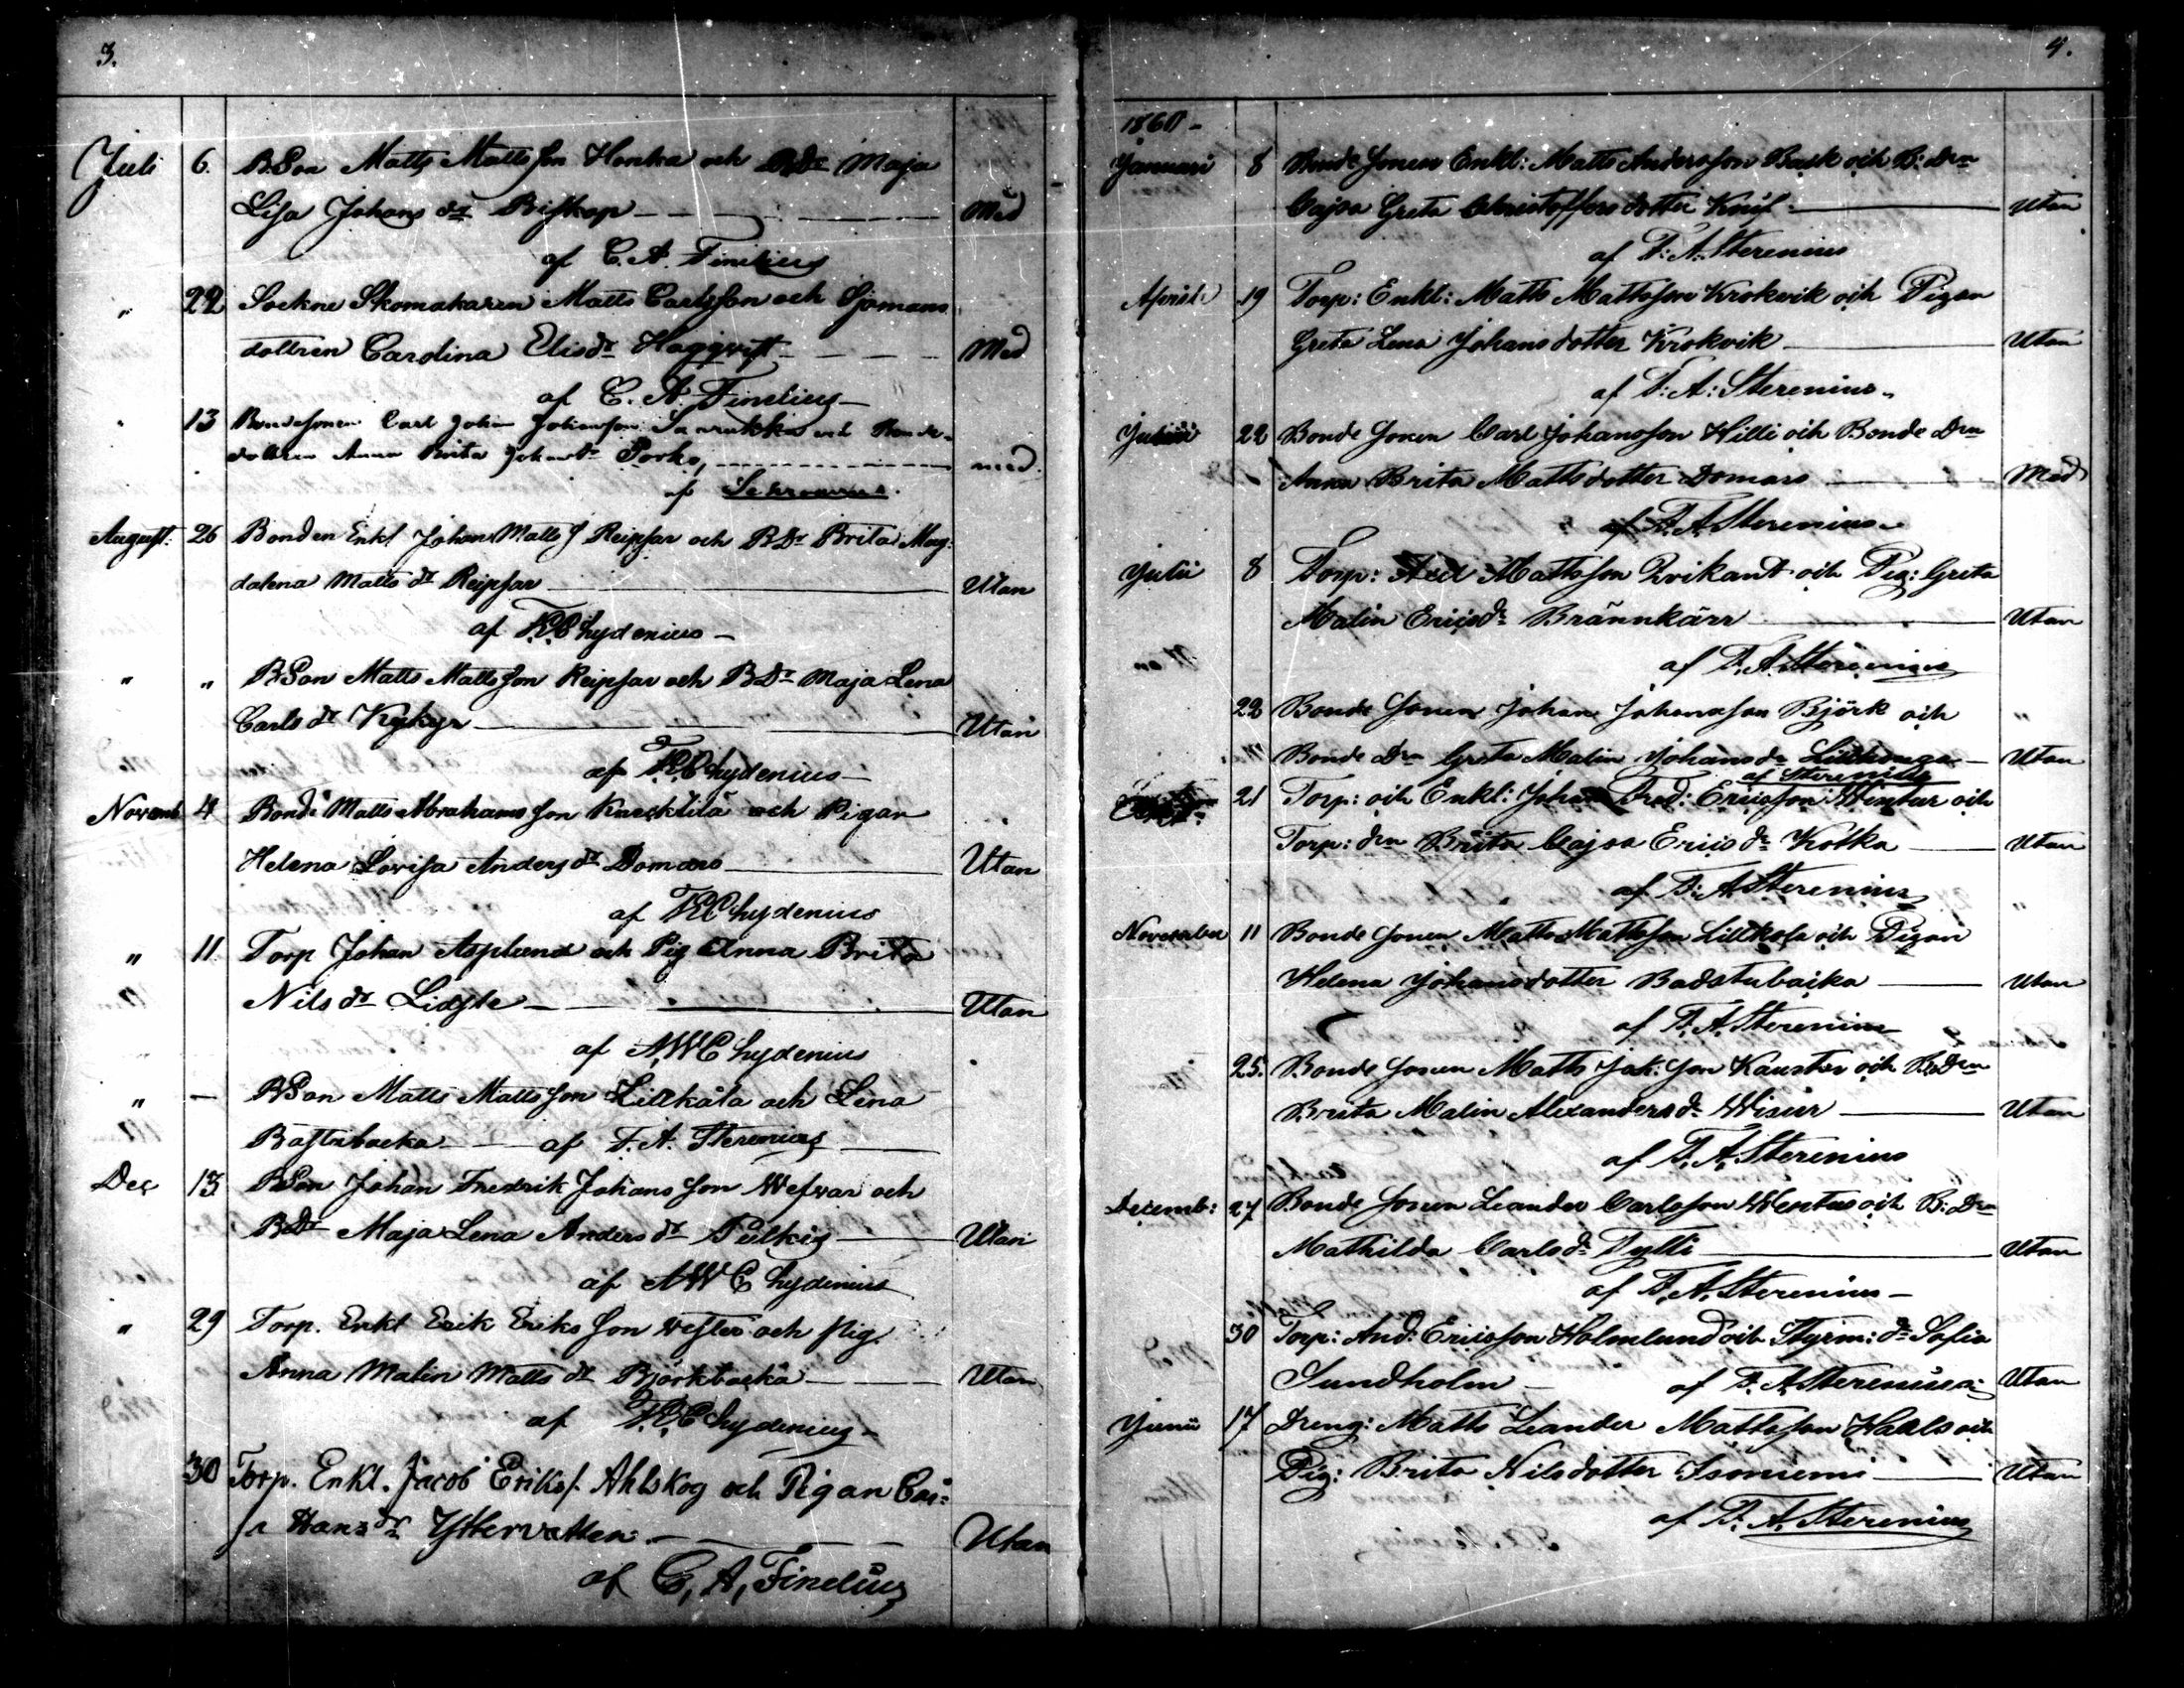 3.
Juli 6. BSon Matts Mattsson Honka och BDr Maja
Lisa Johans dr Biskop Med
af C. A. Finelius
" 22 Sockne Skomakaren Matts Carlsson och Sjömans
dottren Carolina Elisdr Häggqvist Med
af C. A. Finelius
" 13 Bondesonen Carl Johan Johansson och Bonde-
dottren Anna Brita Johansdr Porko, med.
af
August. 26 Bonden Enkl Johan Matts S Reipsar och BDr Brita Mag-
dalena Matts dr Reipsar Utan
af Chydenius
" " BSon Matts Mattsson Reipsar och BDr Maja Lena
Carls dr Kykyr Utan
af Chydenius
Novemb 4 Bond Matts Abrahamsson Knecktilä och Pigan
Helena Lovisa Anders dr Domars Utan
af Chydenius
" 11 Torp Johan Asplund och Pig Anna Brita
Nils dr Utan
af AWChydenius
" — BSon Matts Mattsson Lillkåla och Lena
Bastubacka af F. A. Sterenius
Dec 13 BSon Johan Fredrik Johansson Wefvar och
BDr Maja Lena Anders dr Pulkis Utan
af AWChydenius
" 29 Torp. Enkl Erik Eriksson Wester och Pig.
Anna Malin Matts dr Björkbacka Utan
af Chydenius
30 Torp. Enkl. Jacob Eriks s. Ahlskog och Pigan Caj-
sa Hans dr Yttervatten Utan
af C. A. Finelius
4.
1860
Januari 8 Bonde sonen Enkl: Matts Andersson Bask och B: Drn
Cajsa Greta Christoffers dotter Knif Utan
af F: A: Sterenius
Aprill 19 Torp: Enkl: Matts Mattsson Krokvik och Pigan
Greta Lena Johans dotter Krokvik Utan
af F: A: Sterenius
22 Bonde sonen Carl Johansson Hilli och Bonde Drn
Anna Brita Matts dotter Domars Med
af F. A. Sterenius
Julii 8 Torp: Mattsson Qvikant och Pig: Greta
Malin Ericsdr Brännkärr Utan
af F. A. Sterenius
22 Bonde Sonen Johan Johansson Björk och "
Bonde Drn Greta Malin Johans dr Utan
af Sterenius
21 Torp: och Enkl: Johan Fred: Ericsson Wentus och
Torp: drn Brita Cajsa Erics dr Kotka Utan
af F. A. Sterenius
November 11 Bonde Sonen Matts Mattsson Lillkåla och Pigan
Helena Johansdotter Badstubacka Utan
af F. A. Sterenius
25. Bonde Sonen Matts Jak: Son Kaustar och B: Drn
Brita Malin Alexanders dr Wisur Utan
af F. A. Sterenius
Decemb: 27 Bonde Sonen Leander Carlsson Wentus och B: Drn
Mathilda Carlsdr Tylli Utan
af F. A. Sterenius
30 Torp: And: Ericsson Holmlund och Styrm: dr Sofia
Sundholm af F. A. Sterenius Utan
Junii 17 Dreng: Matts Leander Mattsson Haals och
Pig: Brita Nilsdotter Isoniemi Utan
af F. A. Sterenius